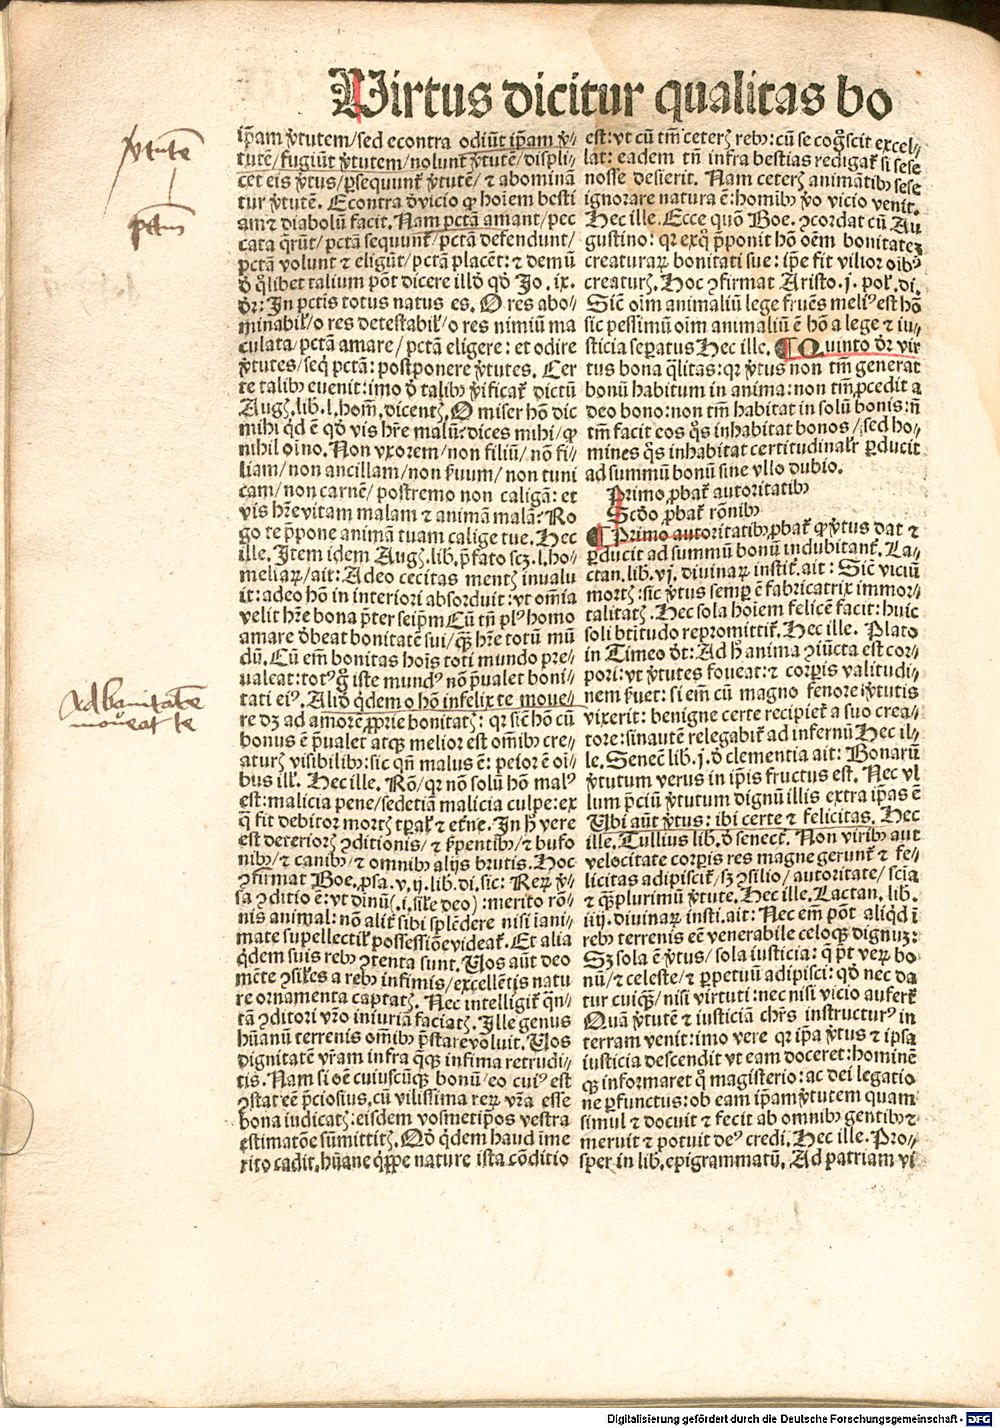 Virtus dicitur qualitas bo
v̾tutē
pc̄tm̄
Ad bonitatē
moueat te
ip̄am v̾tutem/sed econtra odiūt ip̄am v̾-
tutē/fugiūt v̾tutem/nolunt v̾tutē/displi-
cet eis v̾tus/ꝑsequunt᷑ v̾tutē/⁊ abominā
tur v̾tutē. Econtra ð vicio ꝙ hoīem besti
am ⁊ diabolū facit. Nam pctā amant/pec
cata q̄rūt/pctā sequunt᷑/pctā defendunt/
pctā volunt ⁊ eligūt/pctā placēt: ⁊ demū
ð q̄libet talium pōt dicere illð qð Jo. ix.
ðr: In pctis totus natus es. O res abo-
minabil᷑/o res detestabil᷑/o res nimiū ma
culata/pctā amare/pctā eligere: et odire
v̾tutes/seq̇ pctā: postponere v̾tutes. Cer
te talibꝰ euenit: imo ð talibꝰ v̾ificat᷑ dictū
Augꝭ. lib. l. hom̄. dicentꝭ. O miser hō dic
mihi qd ē qð vis hr̄e malū? dices mihi/ꝙ
nihil oīno. Non vxorem/non filiū/nō fi-
liam/non ancillam/non ẜuum/non tuni
cam/non carnē/postremo non caligā: et
vis hr̄e vitam malam ⁊ animā malā: Ro
go te p̄pone animā tuam calige tue. Hec
ille. Item idem Augꝭ. lib. p̄fato scꝫ. l. ho-
meliaꝝ/ait: Adeo cecitas mentꝭ inualu
it: adeo hō in interiori absorduit: vt om̄ia
velit hr̄e bona p̄ter seip̄m Cū tn̄ plꝰ homo
amare ðbeat bonitatē sui/qꝫ hr̄e totū mū
dū. Cū em̄ bonitas hoīs toti mundo pre-
ualeat: totꝰ g̊ iste mundꝰ nō p̄ualet boni-
tati eiꝰ. Aliȯ q̇demo o hō infelix te moue-
re dꝫ ad amorē ꝓprie bonitatꝭ: qꝛ sic̄ hō cū
bonus ē p̄ualet atqꝫ melior est om̄ibꝰ cre-
aturꝭ visibilibꝰ: sic qn̄ malus ē: peior ē oī-
bus ill᷑. Hec ille. Rō/qꝛ nō solū hō malꝰ
est: malicia pene/sed etiā malicia culpe: ex
q̄ fit debitor mortꝭ tꝑal᷑ ⁊ et̄ne. In hͦ vere
est deteriorꝭ ꝯditionis/⁊ ẜpentibꝰ/⁊ bufo
nibꝰ/⁊ canibꝰ/⁊ omnibꝰ alijs brutis. Hoc
ꝯfirmat Boe. ꝓsa. v. ij. lib. di. sic: Reꝝ v̾-
sa ꝯditio ē: vt dīnū (.i. sil᷑e deo): merito rō-
nis animal: nō alit᷑ sibi splēdere nisi īani-
mate supellectil᷑ possessiōe videat᷑. Et alia
q̇dem suis rebꝰ ꝯtenta sunt. Uos aūt deo
mēte ꝯsil᷑es a rebꝰ infimis/excellētis natu
re ornamenta captatꝭ. Nec intelligit᷑ q̄n-
tā ꝯditori vr̄o iniuriā faciatꝭ. Ille genus
hūanū terrenis om̄ibꝰ p̄stare voluit. Uos
dignitatē vr̄am infra q̄qꝫ infima retrudi-
tis. Nam si oē cuiuscūqꝫ bonū/eo cuiꝰ est
ꝯstat eē p̄ciosius, cū vilissima reꝝ vr̄a esse
bona iudicatꝭ: eisdem vosmetip̄os vestra
estimatōe sūmittitꝭ. Qð q̇dem haud īme
rito cadit. hūane q̇ppe nature ista cōditio
est: vt cū tm̄ ceterꝭ rebꝰ: cū se cog̊scit excel-
lat: eadem tn̄ infra bestias redigat᷑ si sese
nosse desierit. Nam ceterꝭ animātibꝰ sese
ignorare natura ē: homibꝰ v̊o vicio venit.
Hec ille. Ecce quō Boe. ꝯcordat cū Au
gustino: qꝛ exq̊ p̄ponit hō oēm bonitatez
creaturaꝝ bonitati sue: ip̄e fit vilior oībꝰ
creaturꝭ. Hoc ꝯfirmat Aristo. j. pol᷑. di.
Sic̄ oīm animaliū lege fruēs meliꝰ est hō
sic pessimū oīm animaliū ē hō a lege ⁊ iu-
sticia seꝑatus Hec ille. ¶ Quinto ðr vir
tus bona q̄litas: qꝛ v̾tus non tm̄ generat
bonū habitum in anima: non tm̄ ꝓcedit a
deo bono: non tm̄ habitat in solū bonis: n̄
tm̄ facit eos q̊s inhabitat bonos/sed ho-
mines q̊s inhabitat certitudinalr̄ ꝑducit
ad summū bonū sine vllo dubio.
Primo ꝓbat᷑ autoritatibꝰ
Scðo ꝓbat᷑ rōnibꝰ
¶ Primo autoritatibꝰ ꝓbat᷑ ꝙ v̾tus dat ⁊
ꝑducit ad summū bonū indubitant᷑. La-
ctan. lib. vj. diuinaꝝ instit᷑. ait: Sic̄ viciū
mortꝭ: sic v̾tus semꝑ ē fabricatrix immor-
talitatꝭ. Hec sola hoīem felicē facit: huic
soli bt̄itudo repromittit᷑. Hec ille. Plato
in Timeo ðt: Ad hͦ anima ꝯiūcta est cor-
pori: vt v̾tutes foueat: ⁊ corꝑis valitudi-
nem ẜuet: si em̄ cū magno fenore v̾tutis
vixerit: benigne certe recipiet᷑ a suo crea-
tore: sin autē relegabit᷑ ad infernū Hec il-
le. Senec̄ lib. j. ð clementia ait: Bonarū
v̾tutum verus in ip̄is fructus est. Nec vl
lum p̄ciū v̾tutum dignū illis extra ip̄as ē
Ubi aūt v̾tus: ibi certe ⁊ felicitas. Hec
ille. Tullius lib. ð senect᷑. Non viribꝰ aut
velocitate corꝑis res magne gerunt᷑ ⁊ fe-
licitas adipiscit᷑/sꝫ ꝯsilio/autoritate/scīa
⁊ qꝫplurimū v̾tute. Hec ille. Lactan. lib.
iiij. diuinaꝝ insti. ait: Nec em̄ pōt aliqd ī
rebꝰ terrenis eē venerabile celoqꝫ dignuꝫ:
Sꝫ sola ē v̾tus/sola iusticia: q̄ pt̄ veꝝ bo
nū/⁊ celeste/⁊ ꝑpetuū adipisci: qð nec da
tur cuiqꝫ/nisi virtuti: nec nisi vicio aufert᷑
Quā v̾tutē ⁊ iusticiā chr̄s instructurꝰ in
terram venit: imo vere qꝛ ip̄a v̾tus ⁊ ipsa
iusticia descendit vt eam doceret: hominē
qꝫ informaret q̊ magisterio: ac dei legatio
ne ꝑfunctus: ob eam ip̄am v̾tutem quam
simul ⁊ docuit ⁊ fecit ab omnibꝰ gentibꝰ ⁊
meruit ⁊ potuit deꝰ credi. Hec ille. Pro-
sper in lib. epigrammatū. Ad patriam vi
Digitalisierung gefördert durch die Deutsche Forschungsgemeinschaft - DFG